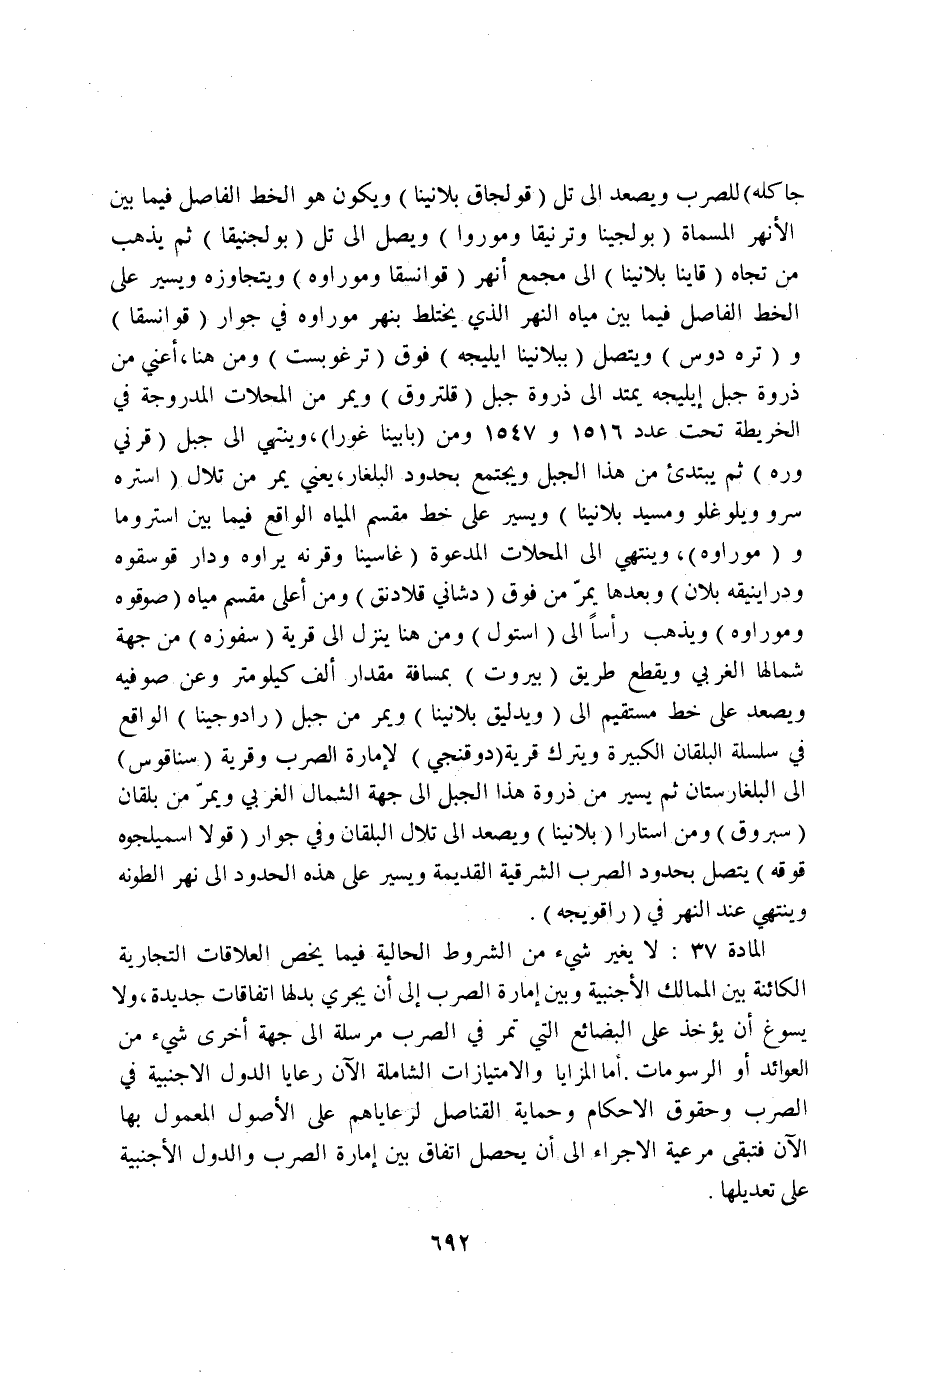 جاكله) للصرب ويصعد الى تل ( قولجاق بلانينا ) ويكون هو الخط الفاصل فيما بين
الأنهر المسماة ( بولجينا وترنيقا وموروا ) ويصل الى تل ( بولجنيقا ) ثم يذهب
من تجاه ( قاينا بلانينا ) الى مجمع أنهر ( قوانسقا وموراوه ) ويتجاوزه ويسير على
الخط الفاصل فيما بين مياه النهر الذي يختلط بنهر موراوه في جوار ( قوانسقا )
و ( تره دوس ) ويتصل ( ببلانينا ايليجه ) فوق ( ترغوبست ) ومن هنا،أعني من
ذروة جبل إيليجه يمتد الى ذروة جبل ( قلتروق ) ويمر من المحلات المدروجة في
الخريطة تحت عدد ١٥١٦ و ١٥٤٧ ومن (بابينا غورا)،وينتهي الى جبل ( قرني
وره ) ثم يبتدئ من هذا الجبل ويجتمع بحدود البلغار،يعني يمر من تلال ( استره
سرو ويلوغلو ومسيد بلانينا ) ويسير على خط مقسم المياه الواقع فيما بين استروما
و ( موراوه)، وينتهي الى المحلات المدعوة ( غاسينا وقرنه يراوه ودار قوسقوه
ودراينيقه بلان ) وبعدها يمرّ من فوق ( دشاني قلادنق ) ومن أعلى مقسم مياه ( صوقوه
وموراوه ) ويذهب رأساً الى ( استول ) ومن هنا ينزل الى قرية ( سفوزه ) من جهة
شمالها الغربي ويقطع طريق ( بيروت ) بمسافة مقدار ألف كيلومتر وعن صوفيه
ويصعد على خط مستقيم الى ( ويدليق بلانينا ) ويمر من جبل ( رادوجينا ) الواقع
في سلسلة البلقان الكبيرة ويترك قرية(دوقنجي ) لإمارة الصرب وقرية ( سناقوس)
الى البلغارستان ثم يسير من ذروة هذا الجبل الى جهة الشمال الغربي ويمرّ من بلقان
( سبروق ) ومن استارا ( بلانينا ) ويصعد الى تلال البلقان وفي جوار ( قولا اسميلجوه
قوقه ) يتصل بحدود الصرب الشرقية القديمة ويسير على هذه الحدود الى نهر الطونه
وينتهي عند النهر في ( راقويجه ) .
المادة ٣٧ : لا يغير شيء من الشروط الحالية فيما يخص العلاقات التجارية
الكائنة بين الممالك الأجنبية وبين إمارة الصرب إلى أن يجري بدلها اتفاقات جديدة،ولا
يسوغ أن يؤخذ على البضائع التي تمر في الصرب مرسلة الى جهة أخرى شيء من
العوائد أو الرسومات .أما المزايا والامتيازات الشاملة الآن رعايا الدول الاجنبية في
الصرب وحقوق الاحكام وحماية القناصل لرعاياهم على الأصول المعمول بها
الآن فتبقى مرعية الاجراء الى أن يحصل اتفاق بين إمارة الصرب والدول الأجنبية
على تعديلها .
٦٩٢